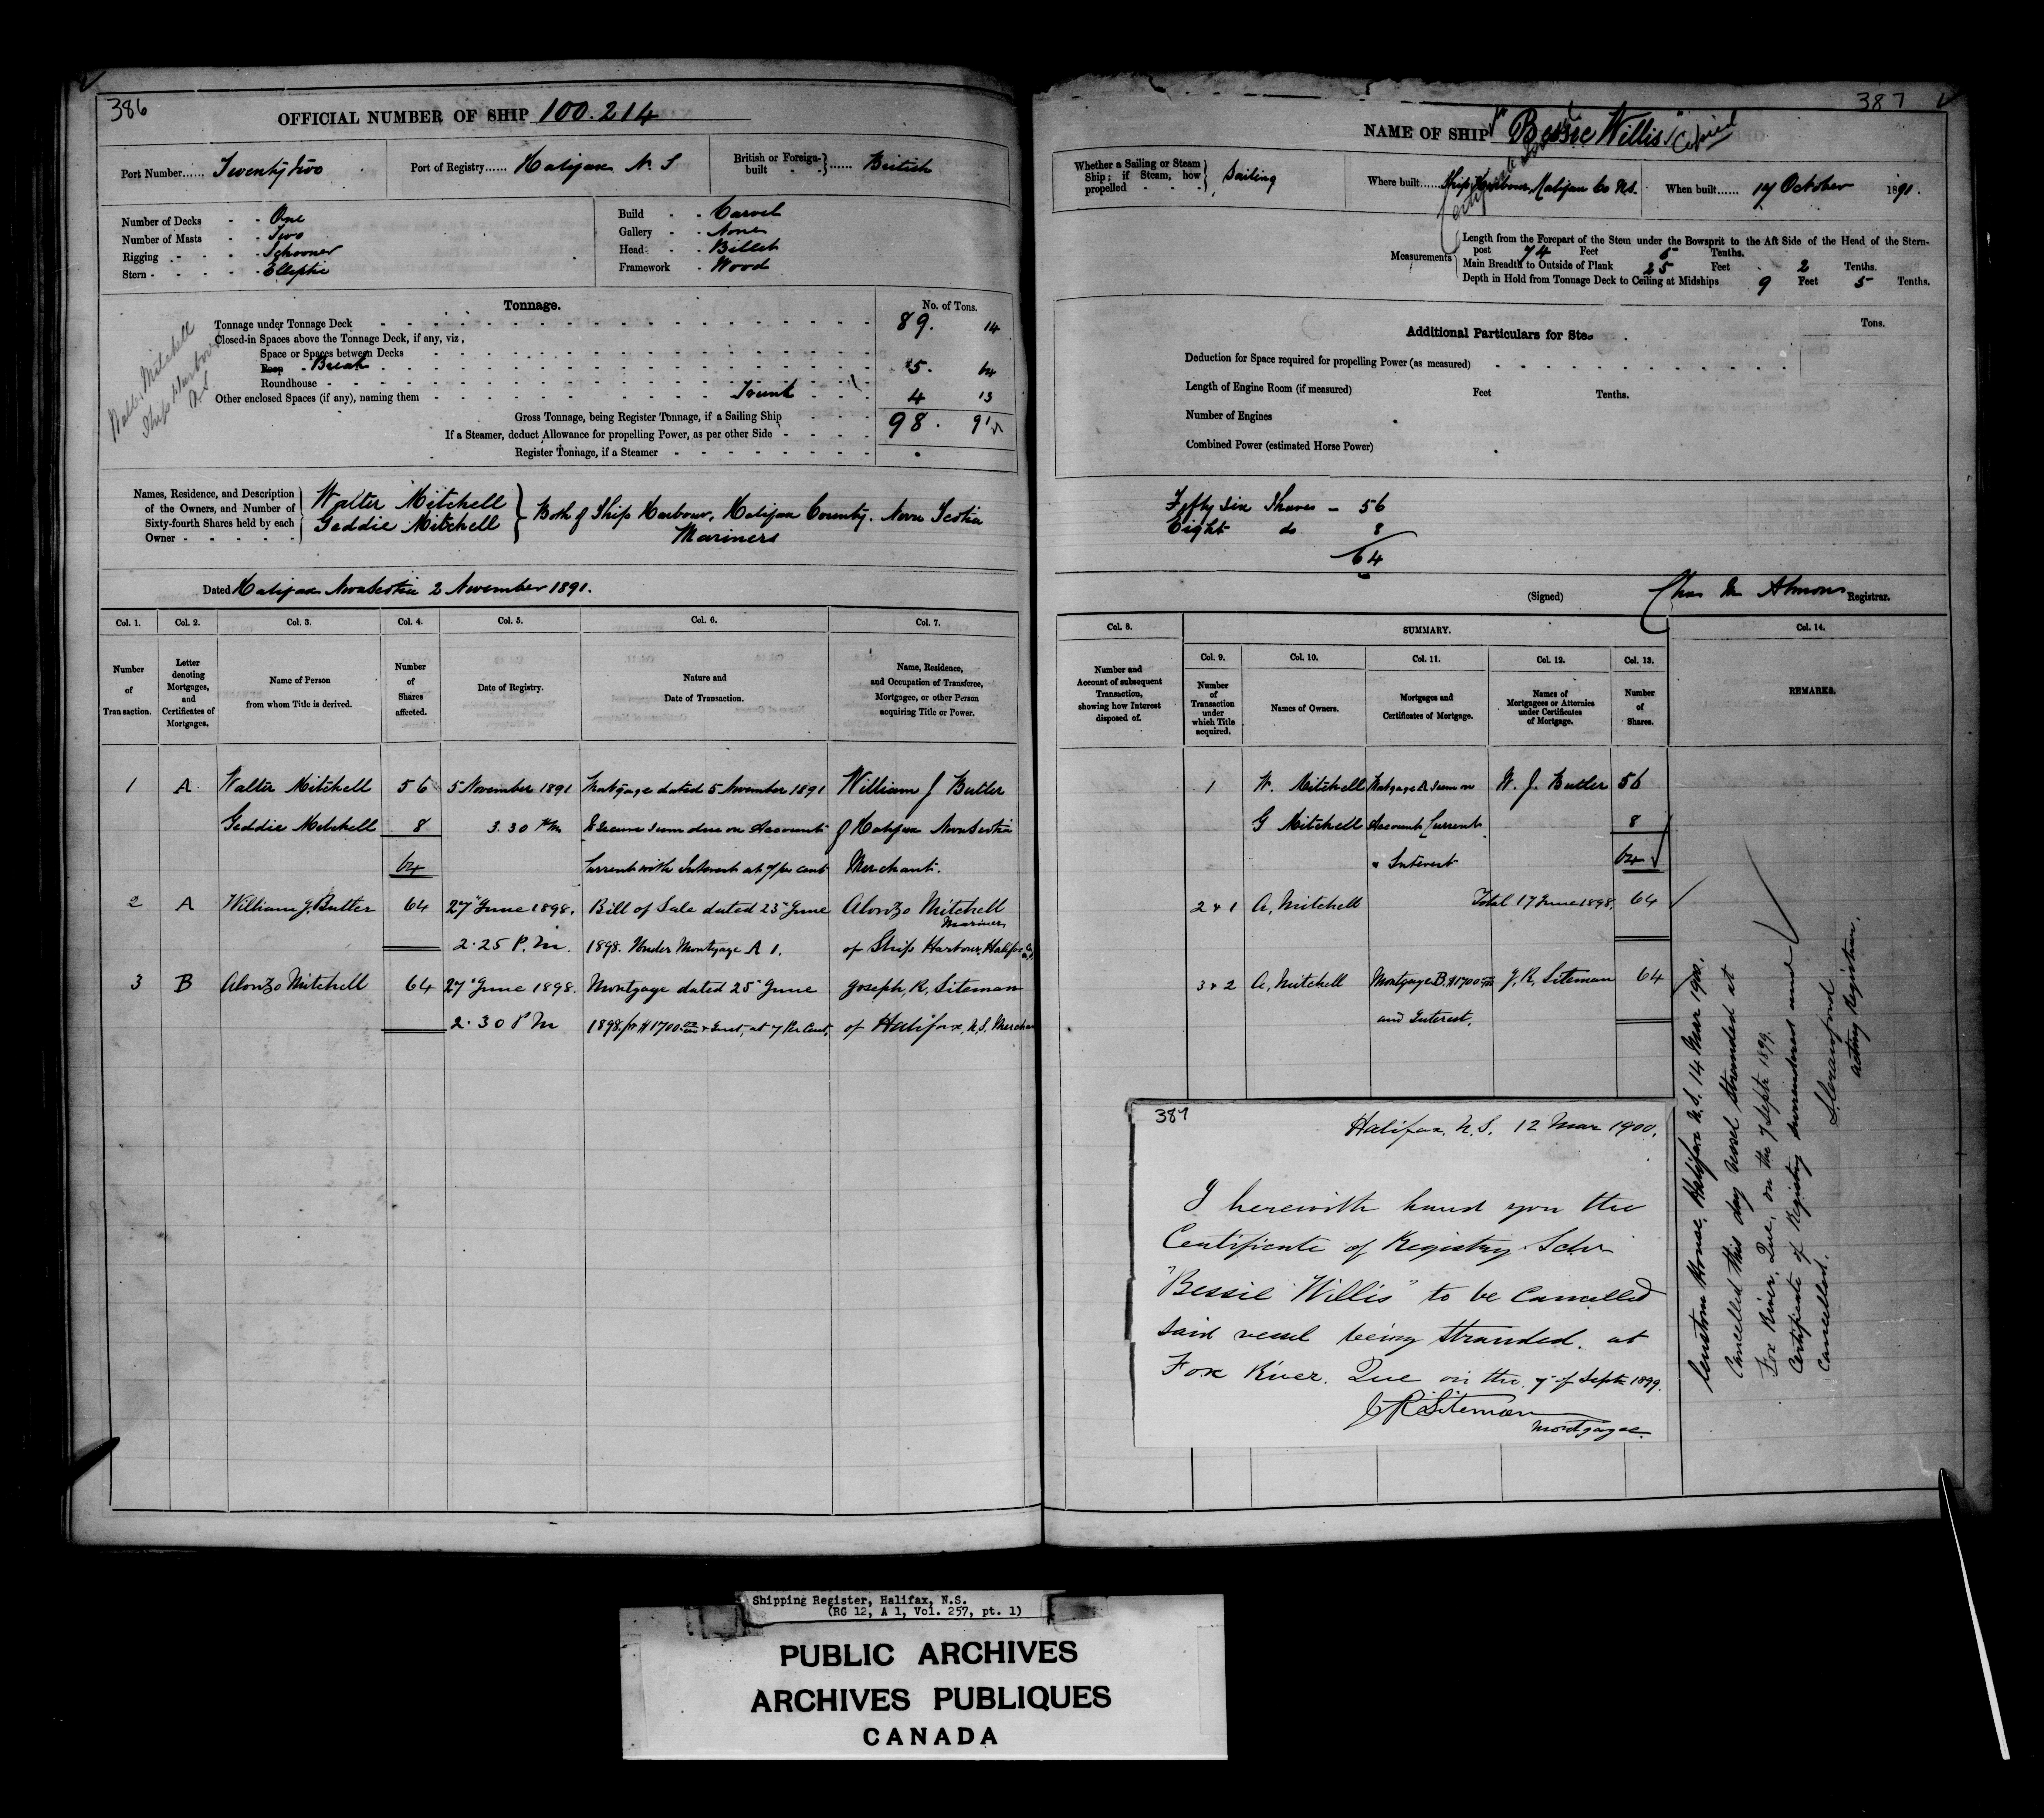 386
OFFICIAL NUMBER OF SHIP 100.214
Port Number...... Twenty two
Port of Registry...... Halifax N. S
British or Foreign-built ...... British
Number of Decks - - One
Number of Masts - - Two
Rigging - - - - Schooner
Stern - - - - Elliptic
Build - - Carvel
Gallery - - None
Head - - Billet
Framework - Wood
Walter Mitchell
Ship Harbour
Tonnage.
No. of Tons.
Tonnage under Tonnage Deck 89. 14
Closed-in Spaces above the Tonnage Deck, if any, viz,
Space or Spaces between Decks
Poop - Break 5. 64
Roundhouse
Other enclosed Spaces (if any), naming them Trunk 4 13
Gross Tonnage, being Register Tonnage, if a Sailing Ship 98. 91
If a Steamer, deduct Allowance for propelling Power, as per other Side
Register Tonnage, if a Steamer
Names, Residence, and Description of the Owners, and Number of Sixty-fourth Shares held by each Owner
Walter Mitchell
Geddie Mitchell
Both of Ship Harbour, Halifax County. Nova Scotia
Mariners
Dated Halifax Nova Scotia 2 November 1891.
Col. 1. Col. 2. Col. 3. Col. 4. Col. 5. Col. 6. Col. 7.
Number of Transaction.
Letter denoting Mortgages, and Certificates of Mortgages.
Name of Person from whom Title is derived.
Number of Shares affected.
Date of Registry.
Nature and Date of Transaction.
Name, Residence, and Occupation of Transferee, Mortgagee, or other Person acquiring Title or Power.
1 A Walter Mitchell 56 5 November 1891 Mortgage dated 5 November 1891 William J Butler
Geddie Mitchell 8 3.30 PM to secure sum due on Account of Halifax Nova Scotia
64 Current with Interest at 7 per cent Merchant.
2 A William J. Butler 64 27" June 1898. Bill of Sale dated 25" June Alonzo Mitchell
Mariner
2.25 P.M. 1898. Under Mortgage A 1. of Ship Harbour, Halifax Co
3 B Alonzo Mitchell 64 27" June 1898. Mortgage dated 25" June Joseph, R, Siteman
2.30 P M 1898, for $1700 & Inst, at 7 Per Cent, of Halifax, N.S. Merchan
387
NAME OF SHIP "Bessie Willis"
Whether a Sailing or Steam Ship; if Steam, how propelled - - - Sailing
Where built...... Ship Harbour, Halifax Co N.S.
When built...... 17 October 1891.
Measurements
Length from the Forepart of the Stem under the Bowsprit to the Aft Side of the Head of the Stern-
post 74 Feet 5 Tenths.
Main Breadth to Outside of Plank 25 Feet 2 Tenths.
Depth in Hold from Tonnage Deck to Ceiling at Midships 9 Feet 5 Tenths.
Additional Particulars for Stea
Tons.
Deduction for Space required for propelling Power (as measured)
Length of Engine Room (if measured) Feet Tenths.
Number of Engines
Combined Power (estimated Horse Power)
Fifty six Shares - 56
Eight do 8
64
(Signed) Chas M Almon Registrar.
Col. 8. SUMMARY. Col. 14.
Col. 9. Col. 10. Col. 11. Col. 12. Col. 13.
Number and Account of subsequent Transaction, showing how Interest disposed of.
Number of Transaction under which Title acquired.
Names of Owners.
Mortgages and Certificates of Mortgage.
Names of Mortgagees or Attornies under Certificates of Mortgage.
Number of Shares.
REMARKS.
1 W. Mitchell Mortgage A sum on W. J. Butler 56
G Mitchell Account Current 8
& Interest 64
2 & 1 A, Mitchell Total 17 June 1898, 64
3 & 2 A, Mitchell Mortgage B. $1700 J, R, Siteman 64
and Interest,
Custom House, Halifax N.S. 14 Mar 1900.
Cancelled this day vessel stranded at
Fox River, Que, on the 7 Septr 1899.
Certificate of Registry surrendered and
Cancelled.
S. Crawford
acting Registrar.
387
Halifax, N.S. 12 Mar 1900.
I herewith hand you the
Certificate of Registry Schr
"Bessie Willis" to be Cancelled
said vessel being stranded. at
Fox River. Que on the 7" of Septr 1899.
J R Siteman
Mortgagee.
Shipping Register, Halifax, N.S.
(RG 12, A 1, Vol. 257, pt. 1)
PUBLIC ARCHIVES
ARCHIVES PUBLIQUES
CANADA